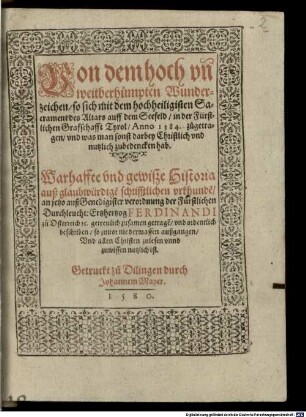 Von dem hoch vñ
weitberhümpten Wunder-
zeichen/ so sich mit dem hochheiligisten Sa-
crament des Altars auff dem Seefeld/ in der Fürst-
lichen Graffschafft Tyrol/ Anno 1384. zůgetra-
gen/ vnd was man sonst darbey Christlich vnd
nutzlich zubedencken hab.
Warhaffte vnd gewisze Historia
auß glaubwürdigē schrifftlichen vrkhundē/
an jetzo auß Genedigister verordnung der Fürstlichen
Durchleucht: Ertzhertzog FERDINANDI
zů Osterreich etc. getreulich zusamen getragē/ vnd ordentlich
beschriben/ so zuuor nie dermassen außgangen/
Vnd allen Christen zulesen vnnd
zuwissen nutzlich ist.
Getruckt zů Dilingen durch
Johannem Mayer.
1580.